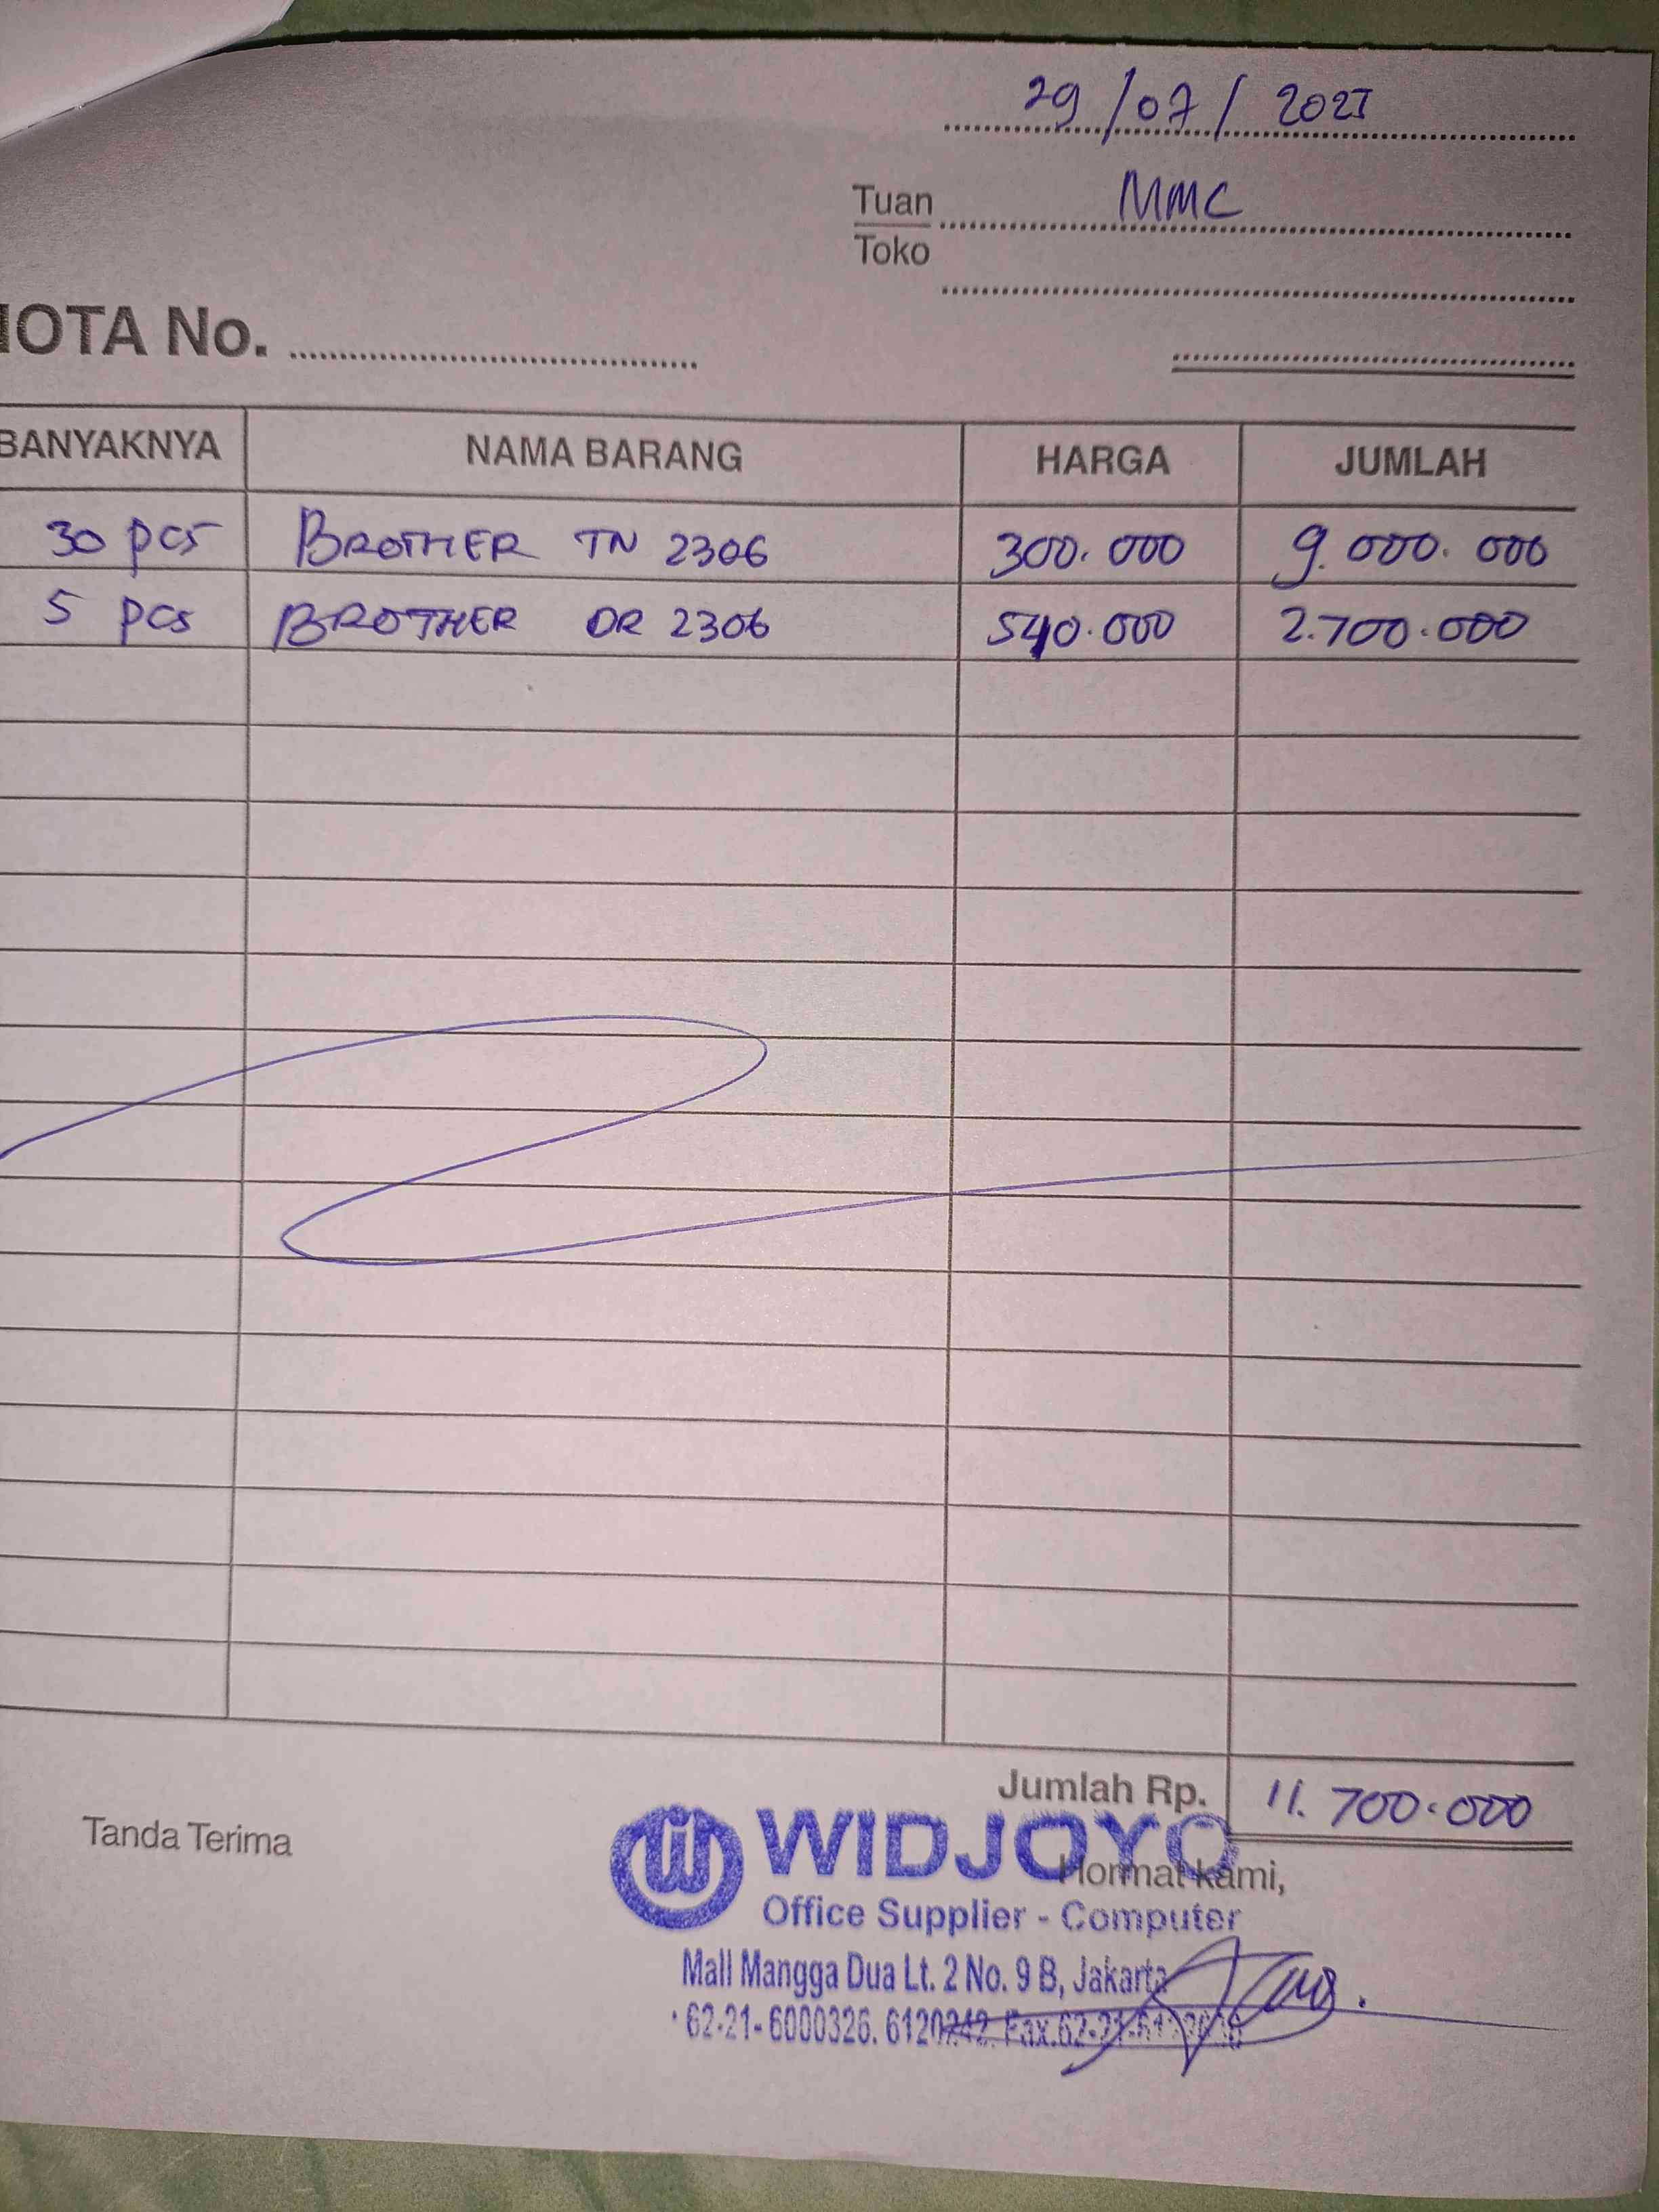 29/07/2025
Tuan MMC
Toko
NOTA No.
BANYAKNYA NAMA BARANG HARGA JUMLAH
30 pcs BROTHER TN 2306 300.000 9.000.000
5 pcs BROTHER DR 2306 540.000 2.700.000
Jumlah Rp. 11.700.000
Tanda Terima
WIDJOYO
Hormat kami,
Office Supplier - Computer
Mall Mangga Dua Lt. 2 No. 9 B, Jakarta
62-21-6000326. 6120242. Fax.